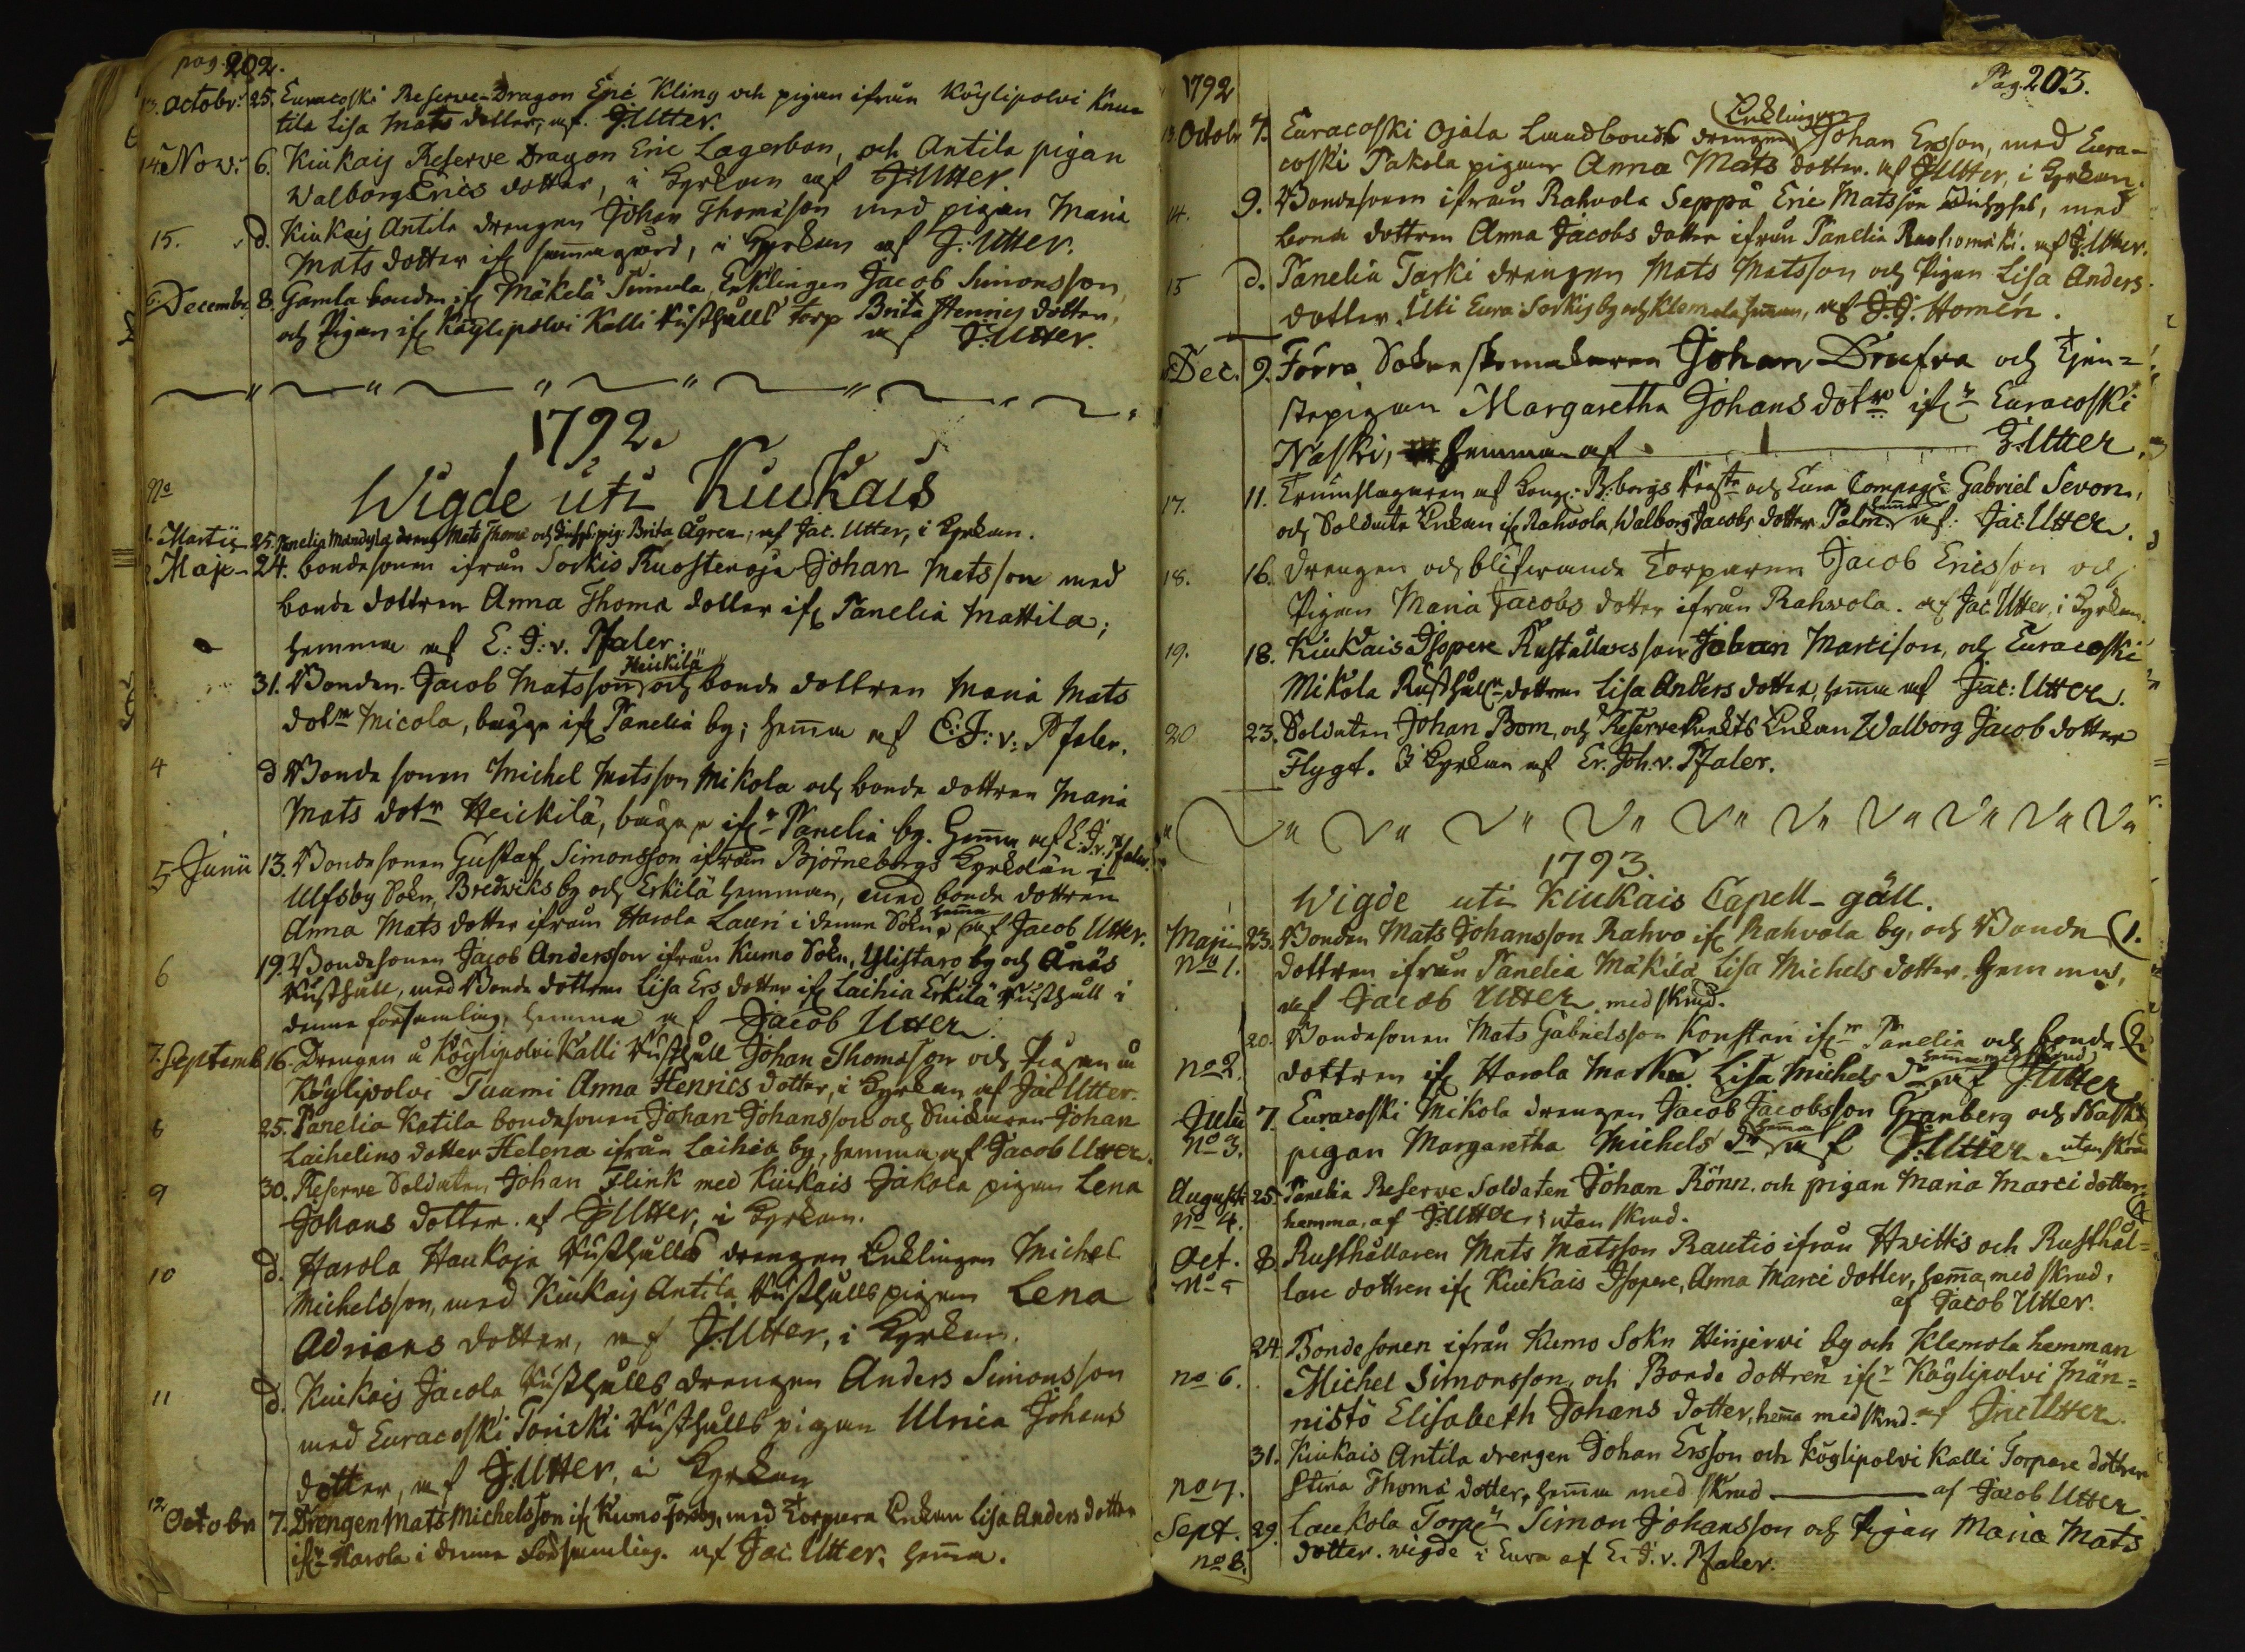 pag. 202.
13. Octobr: 25. Euracoski Reserve-Dragon Eric Kling och pigan ifrån Köylipolvi Knu-
tila Lisa Mats dotter, af. J: Utter.
14. Nov: 6. Kiukais Reserve Dragon Eric Lagerbon, och Antila pigan
Walborg Erics dotter, i Kyrkan af J: Utter.
15. d. Kiukais Antila drengen Johan Thomasson med pigan Maria
Mats dotter if. samma gård, i Kyrkan af J: Utter.
Decembr. 8. Gamla bonden if. Mäkelä Simula, Enklingen Jacob Simonsson,
och Pigan if. Köylipolvi Kalli Rusthålls torp Brita Henrics dotter,
af J: Utter.
1792.
Wigde uti Kiukais
No
1. Martii 25. Panelia Mandyla dreng Mats Thoma och pig: Brita Ågren; af Jac. Utter, i Kyrkan.
2. Maje 24. bondesonen ifrån Sorkis Ruostenoja Johan Matsson med
bonde dottren Anna Thoma dotter if. Panelia Mattila;
hemma af E: J: v. Pfaler.
Heickilä
31. Bonden Jacob Matsson och bonde dottren Maria Mats
dotr Micola, bägge if. Panelia by; hema af E: J: v: Pfaler.
4 d Bonde sonen Michel Matsson Mikola och bonde dottren Maria
Mats dotr Heickilä, bägge ifr Panelia by. Hema af E. J. v. Pfaler.
5 Junii 13. Bondesonen Gustaf Simonsson ifrån Björneborgs Kyrkolän i
Ulfsby Sokn, Bredwiks by och Erkilä hemman, med bonde dottren
Anna Mats dotter ifrån Harola Lauri i denne Sokn, hema af Jacob Utter.
6 19. Bondesonen Jacob Andersson ifrån Kumo Sokn, Ylistaro by och Anäs
Rusthåll, med Bonde dottren Lisa Ers dotter if. Laihia Erkilä Rusthåll i
denne församling, hemma af Jacob Utter.
7. Septemb. 16. Drengen å Köylipolvi Kalli Rusthåll Johan Thomasson och Pigan å
Köylipolvi Tuomi Anna Henrics dotter, i Kyrkan af Jac Utter.
8 25. Panelia Katila bondesonen Johan Johansson och Smidaren Johan
Laihelins dotter Helena ifrån Laihia by, hemma af Jacob Utter.
9 30. Reserve Soldaten Johan Flink med Kiukais Jakola pigan Lena
Johans dotter. af J: Utter, i Kyrkan.
10 d. Harola Haukoja Rusthålls drengen Enklingen Michel
Michelsson, med Kiukais Antila Rusthålls pigan Lena
Adrians dotter, af J: Utter, i Kyrkan.
11 d. Kiukais Jacola Rusthålls drengen Anders Simonsson
med Euracoski Toricki Rusthålls pigan Ulrica Johans
dotter, af J: Utter, i Kyrkan
12 Octobr 7. Drengen Mats Michelsson if. Kumo Forsby, med Torpare Enkan Lisa Anders dotter
ifr Harola i denne Församling. af Jac. Utter, hema.
1792 Pag. 203.
Enklingen
13 Octobr 7. Euracoski Ojala Landbonde drengen Johan Ersson, med Eura-
coski Pakola pigan Anna Mats dotter. af J: Utter, i Kyrkan.
14. 9. Bondesonen ifrån Rahvola Seppä Eric Matsson, med
bonde dottren Anna Jacobs dotter ifrån Panelia. af J: Utter.
15 d. Panelia Taski drengen Mats Matsson och Pigan Lisa Anders
dotter. Uti Eura Sorkis by och Klemola heman, af J. G. Homén.
Dec. 9. Förra Sokneskomakaren Johan Drufva och Tjen-
stepigan Margaretha Johans dotr ifr Euracoski
Naski, hemma af J: Utter.
17. 11. Trumslagaren af Kongl: B:borgs Regte och Eura Compagi Gabriel Sevon,
och Soldate Enkan if. Rahvola, Walborg Jacobs dotter Palm. hema af: Jac: Utter.
18. 16. drengen och blifwande torparen Jacob Ericsson och
Pigan Maria Jacobs dotter ifrån Rahvola. af Jac Utter, i Kyrkan.
19. 18. Kiukais Isopere Rusthållaresson Johan Marcison, och Euracoski
Mikola Rusthållr dottren Lisa Anders dotter, hema af Jac: Utter.
20 23. Soldaten Johan Bom, och Reservekarls Enkan Walborg Jacob dotter
Flygt. I Kyrkan af Er. Joh. v. Pfaler.
1793.
Wigde uti Kiukais Capell-gäll.
Maji 23. Bonden Mats Johansson Rahvo if. Rahvola by, och Bonde 1.
No 1. dottren ifrån Panelia Mäkilä Lisa Michels dotter. hemma,
af Jacob Utter med skrud.
20. Bondesonen Mats Gabrielsson Konsteri ifr Panelia och bonde 2.
No 2. dottren if. Harola Marku Lisa Michels dr hema med skrud af J: Utter
Julii 7. Euracoski Mikola drengen Jacob Jacobsson Granberg och Naski
No 3. pigan Margaretha Michels dr hema af J: Utter utan skrud
Augusti 25. Panelia Reserve Soldaten Johan Rönn. och pigan Maria Marci dotter,
No 4. hemma, af J: Utter; utan skrud.
Oct. 8 Rusthållaren Mats Matsson Rautio ifrån Hvittis och Rusthål-
No 5 lare dottren if. Kiukais Isopere, Anna Marci dotter, hema, med skrud,
af Jacob Utter.
24. Bondesonen ifrån Kumo Sokn Hinjerwi by och Klemola hemman
No 6. Michel Simonsson, och Bonde dottren ifr Köylipolvi Män-
nistö Elisabeth Johans dotter, hema med skrud. af Jac Utter.
31. Kiukais Antila drengen Johan Ersson och Köylipolvi Kalli Torpare dottren
No 7. Stina Thoma dotter, hema med skrud af Jacob Utter.
Sept. 29. Laukola Torpen Simon Johansson och Pigan Maria Mats
No 8. dotter. wigde i Eura af E. J. v. Pfaler.